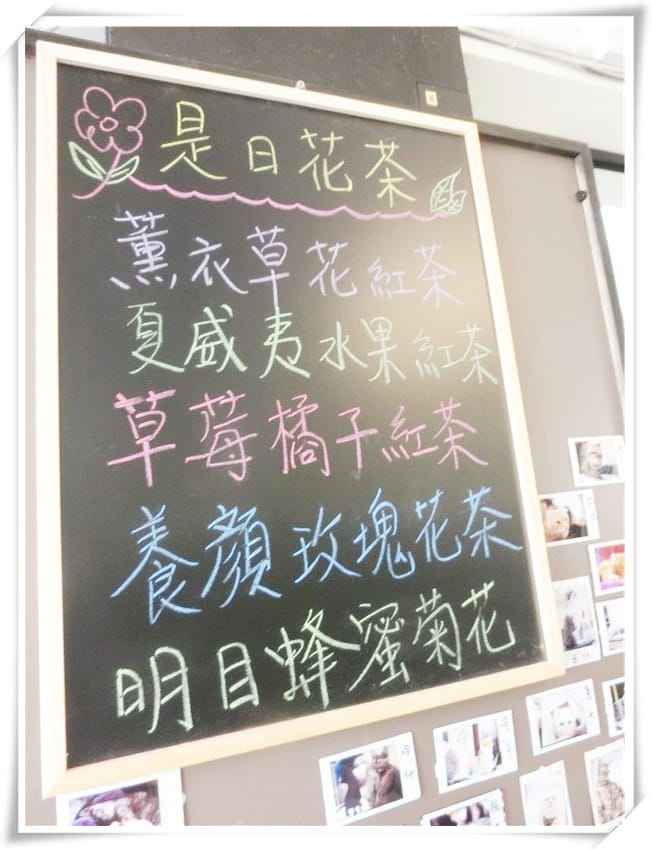 是日花茶
薰衣草花紅茶
夏威夷水果紅茶
草莓橘子紅茶
養顏玫瑰花茶
明目蜂蜜菊花